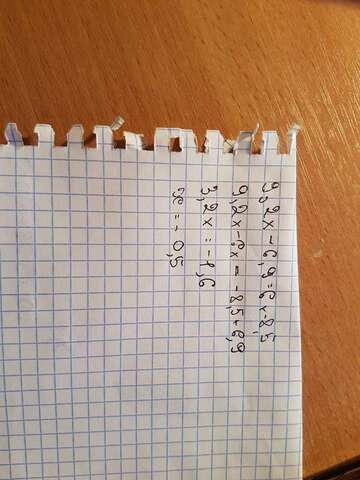 9,2x-6,9=6x-8,5
9,2x-6x=-8,5+6,9
3,2x=-1,6
x=-0,5